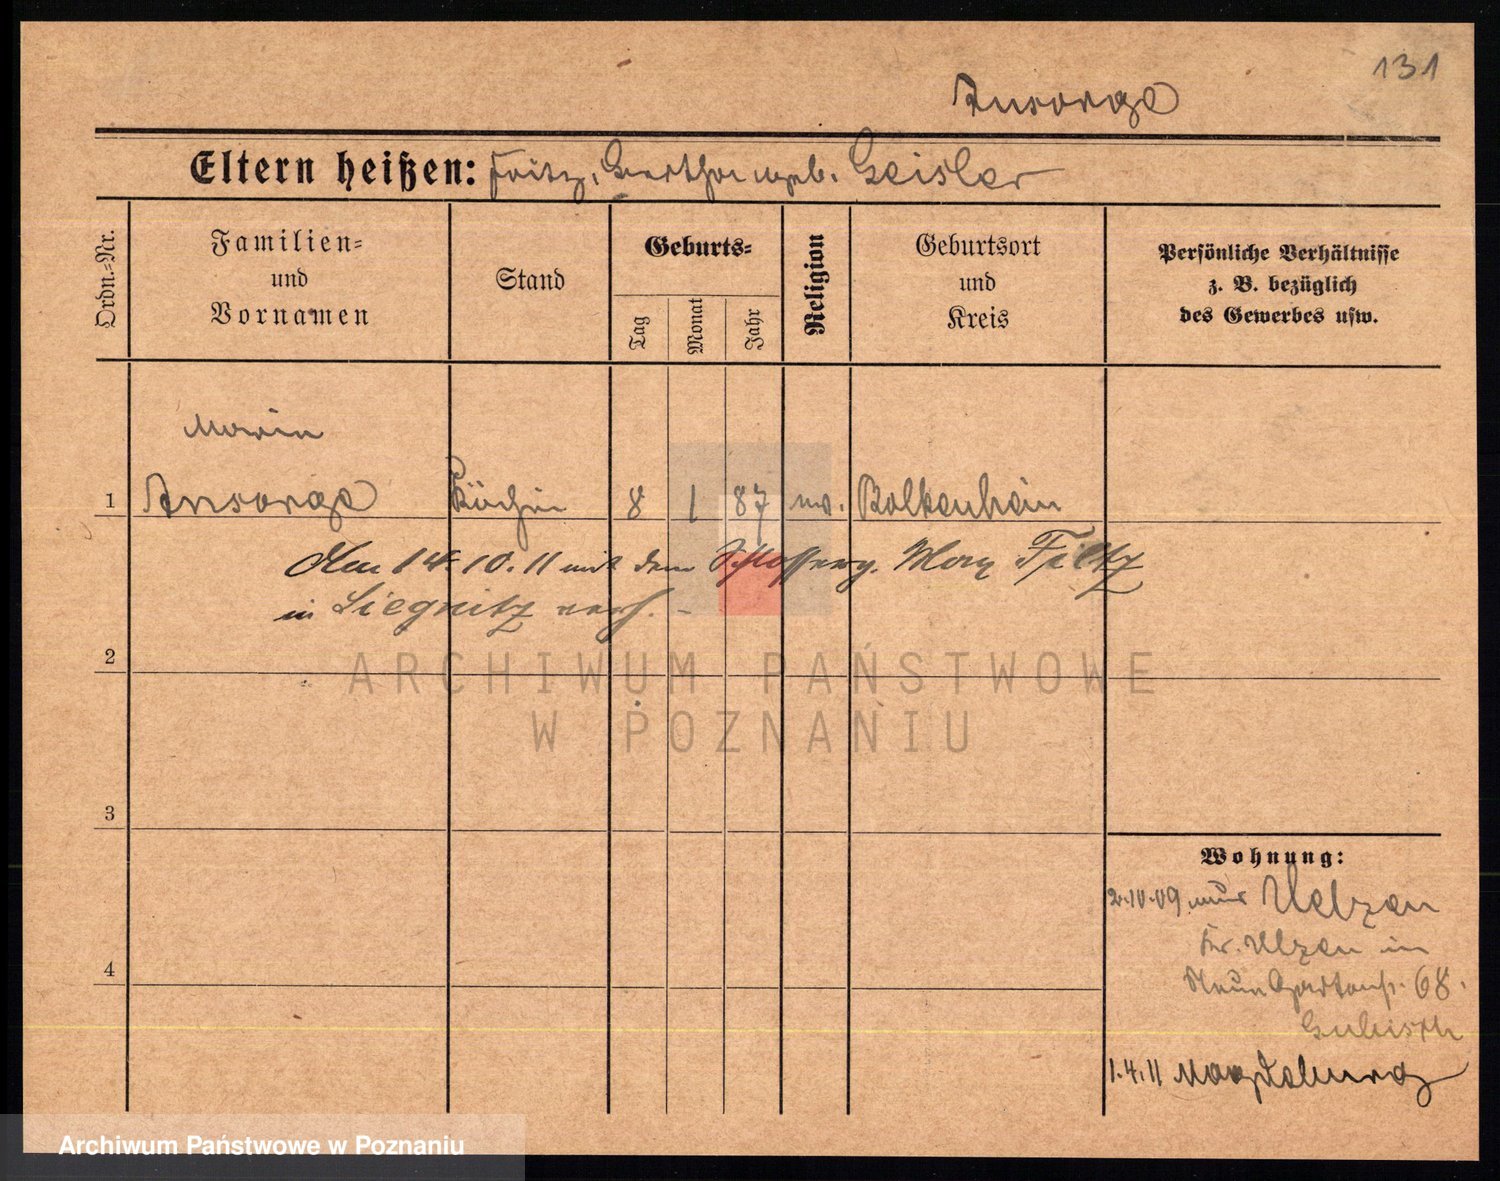 131
Ansorge
Eltern heißen: Fritz, Bertha geb. Geisler
Ordn.-Nr.
Familien-
und
Vornamen
Stand
Geburts-
Tag
Monat
Jahr
Religion
Geburtsort
und
Kreis
Persönliche Verhältnisse
z. B. bezüglich
des Gewerbes usw.
Maria
1 Ansorge Köchin 8 1 87 ev. Bolkenhain
Am 14.10.11 mit dem Max Feltz
in Liegnitz verh. -
2
ARCHIWUM PAŃSTWOWE
W POZNANIU
3
Wohnung:
2.10.09 aus Uelzen
Kr. Ulzen in
Neue Gartenstr. 68.
4
1.4.11 Magdeburg
Archiwum Państwowe w Poznaniu